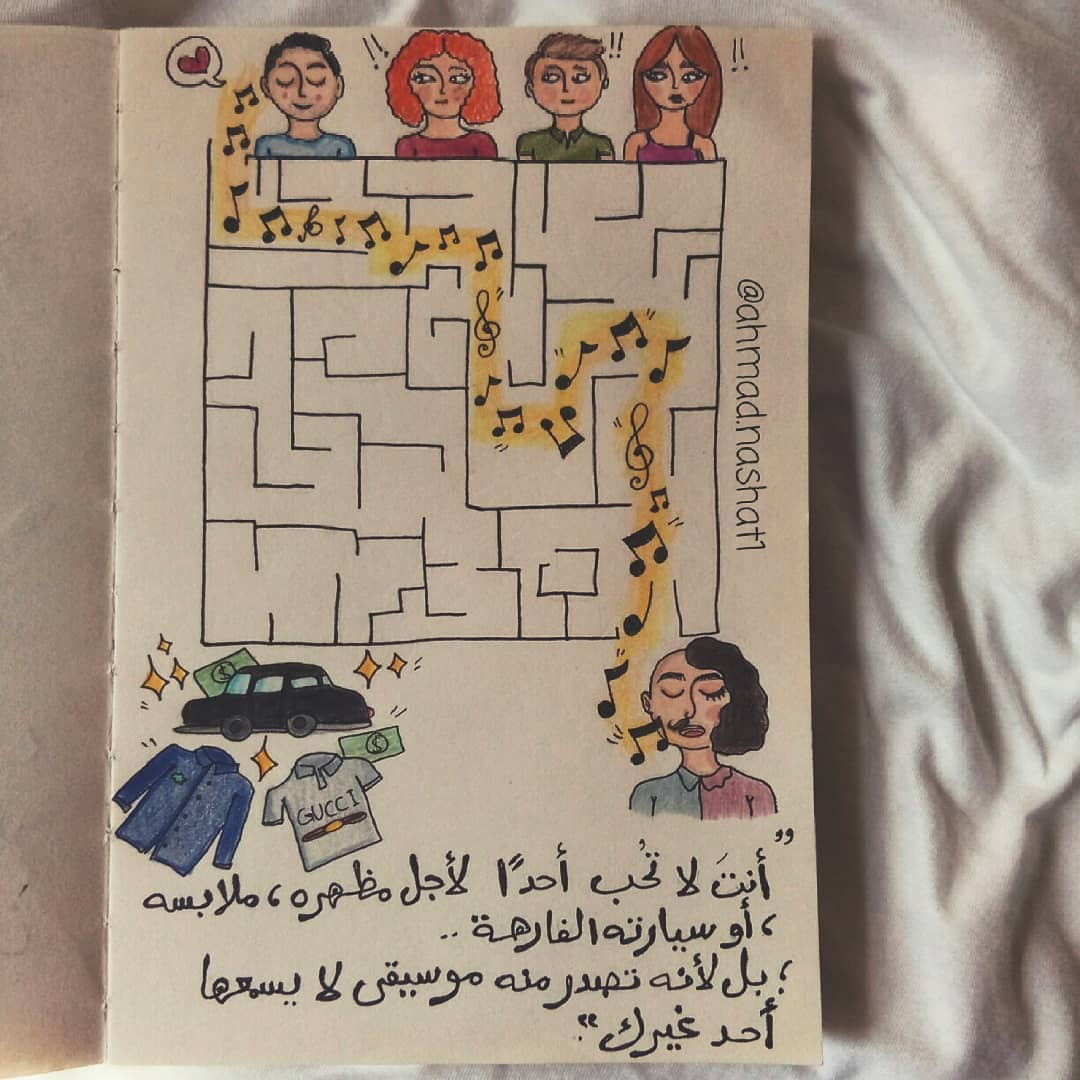 !!
!!
!!
@ahmad.nashat1
$
$
GUCCI
”أنتَ لا تُحب أحدًا لأجل مظهره، ملابسه
،أو سيارته الفارهة ..
؛ بل لأنه تصدر منه موسيقى لا يسمعها
أحد غيرك“.